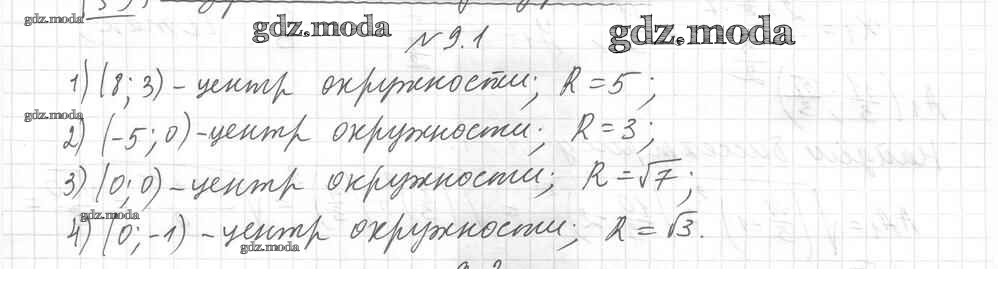 gdz.moda
gdz.moda
gdz.moda
№ 9.1
1) (8; 3) – центр окружности; R = 5;
gdz.moda
2) (-5; 0) – центр окружности; R = 3;
3) (0; 0) – центр окружности; R = √7;
gdz.moda
4) (0; -1) – центр окружности; R = √3.
gdz.moda